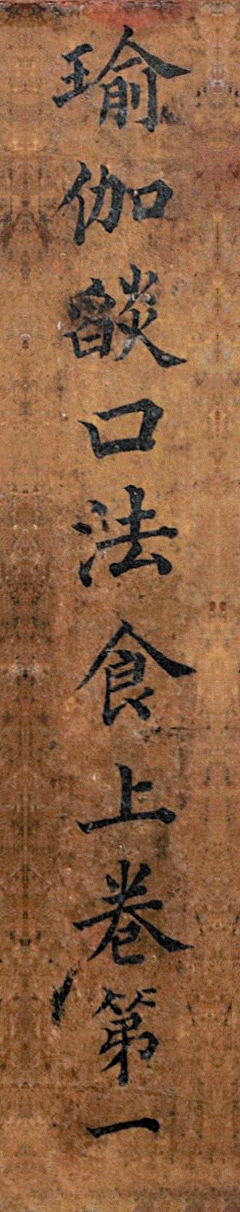 瑜伽燄口法食上卷第一